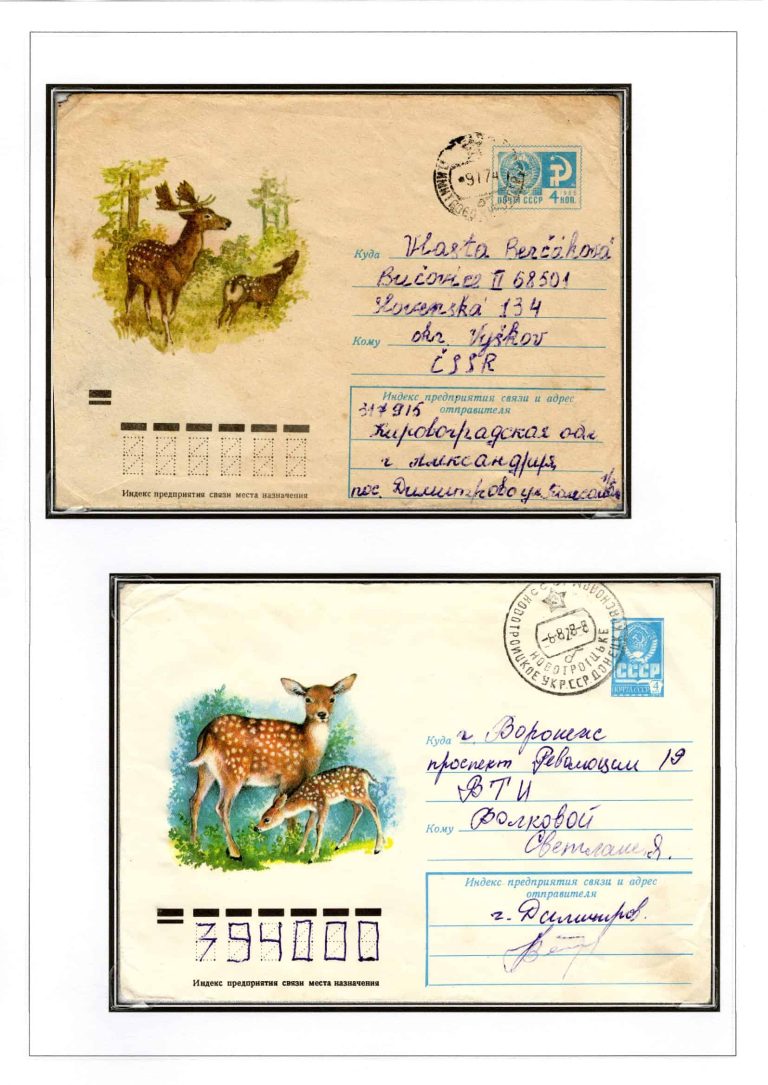 ПОЧТА СССР 4 КОП.
Куда Vlasta Berčáková
Bučovice II 68501
Slovenská 134
Кому okr. Vyškov
ČSSR
Индекс предприятия связи и адрес
отправителя
317915
Кировоградская обл
г Александрия
пос. Димитрово ул.
Индекс предприятия связи места назначения
НОВОТРОИЦКОЕ УКР.ССР. ДОНЕЦК
НОВОТРОЇЦЬКЕ
СССР
ПОЧТА СССР 4
Куда г. Воронеж
проспект Революции 19
ВТИ
Кому Волковой
Светлане Я.
Индекс предприятия связи и адрес
отправителя
г. Димитров.
394000
Индекс предприятия связи места назначения